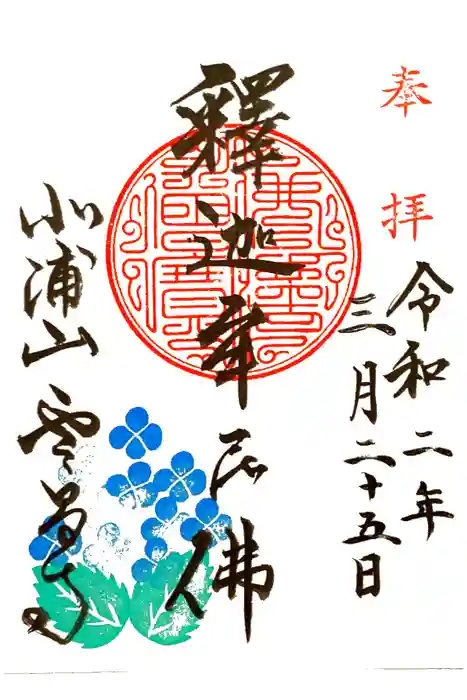 奉拝
令和二年
三月二十五日
釋迦牟尼佛
北浦山 雲昌寺